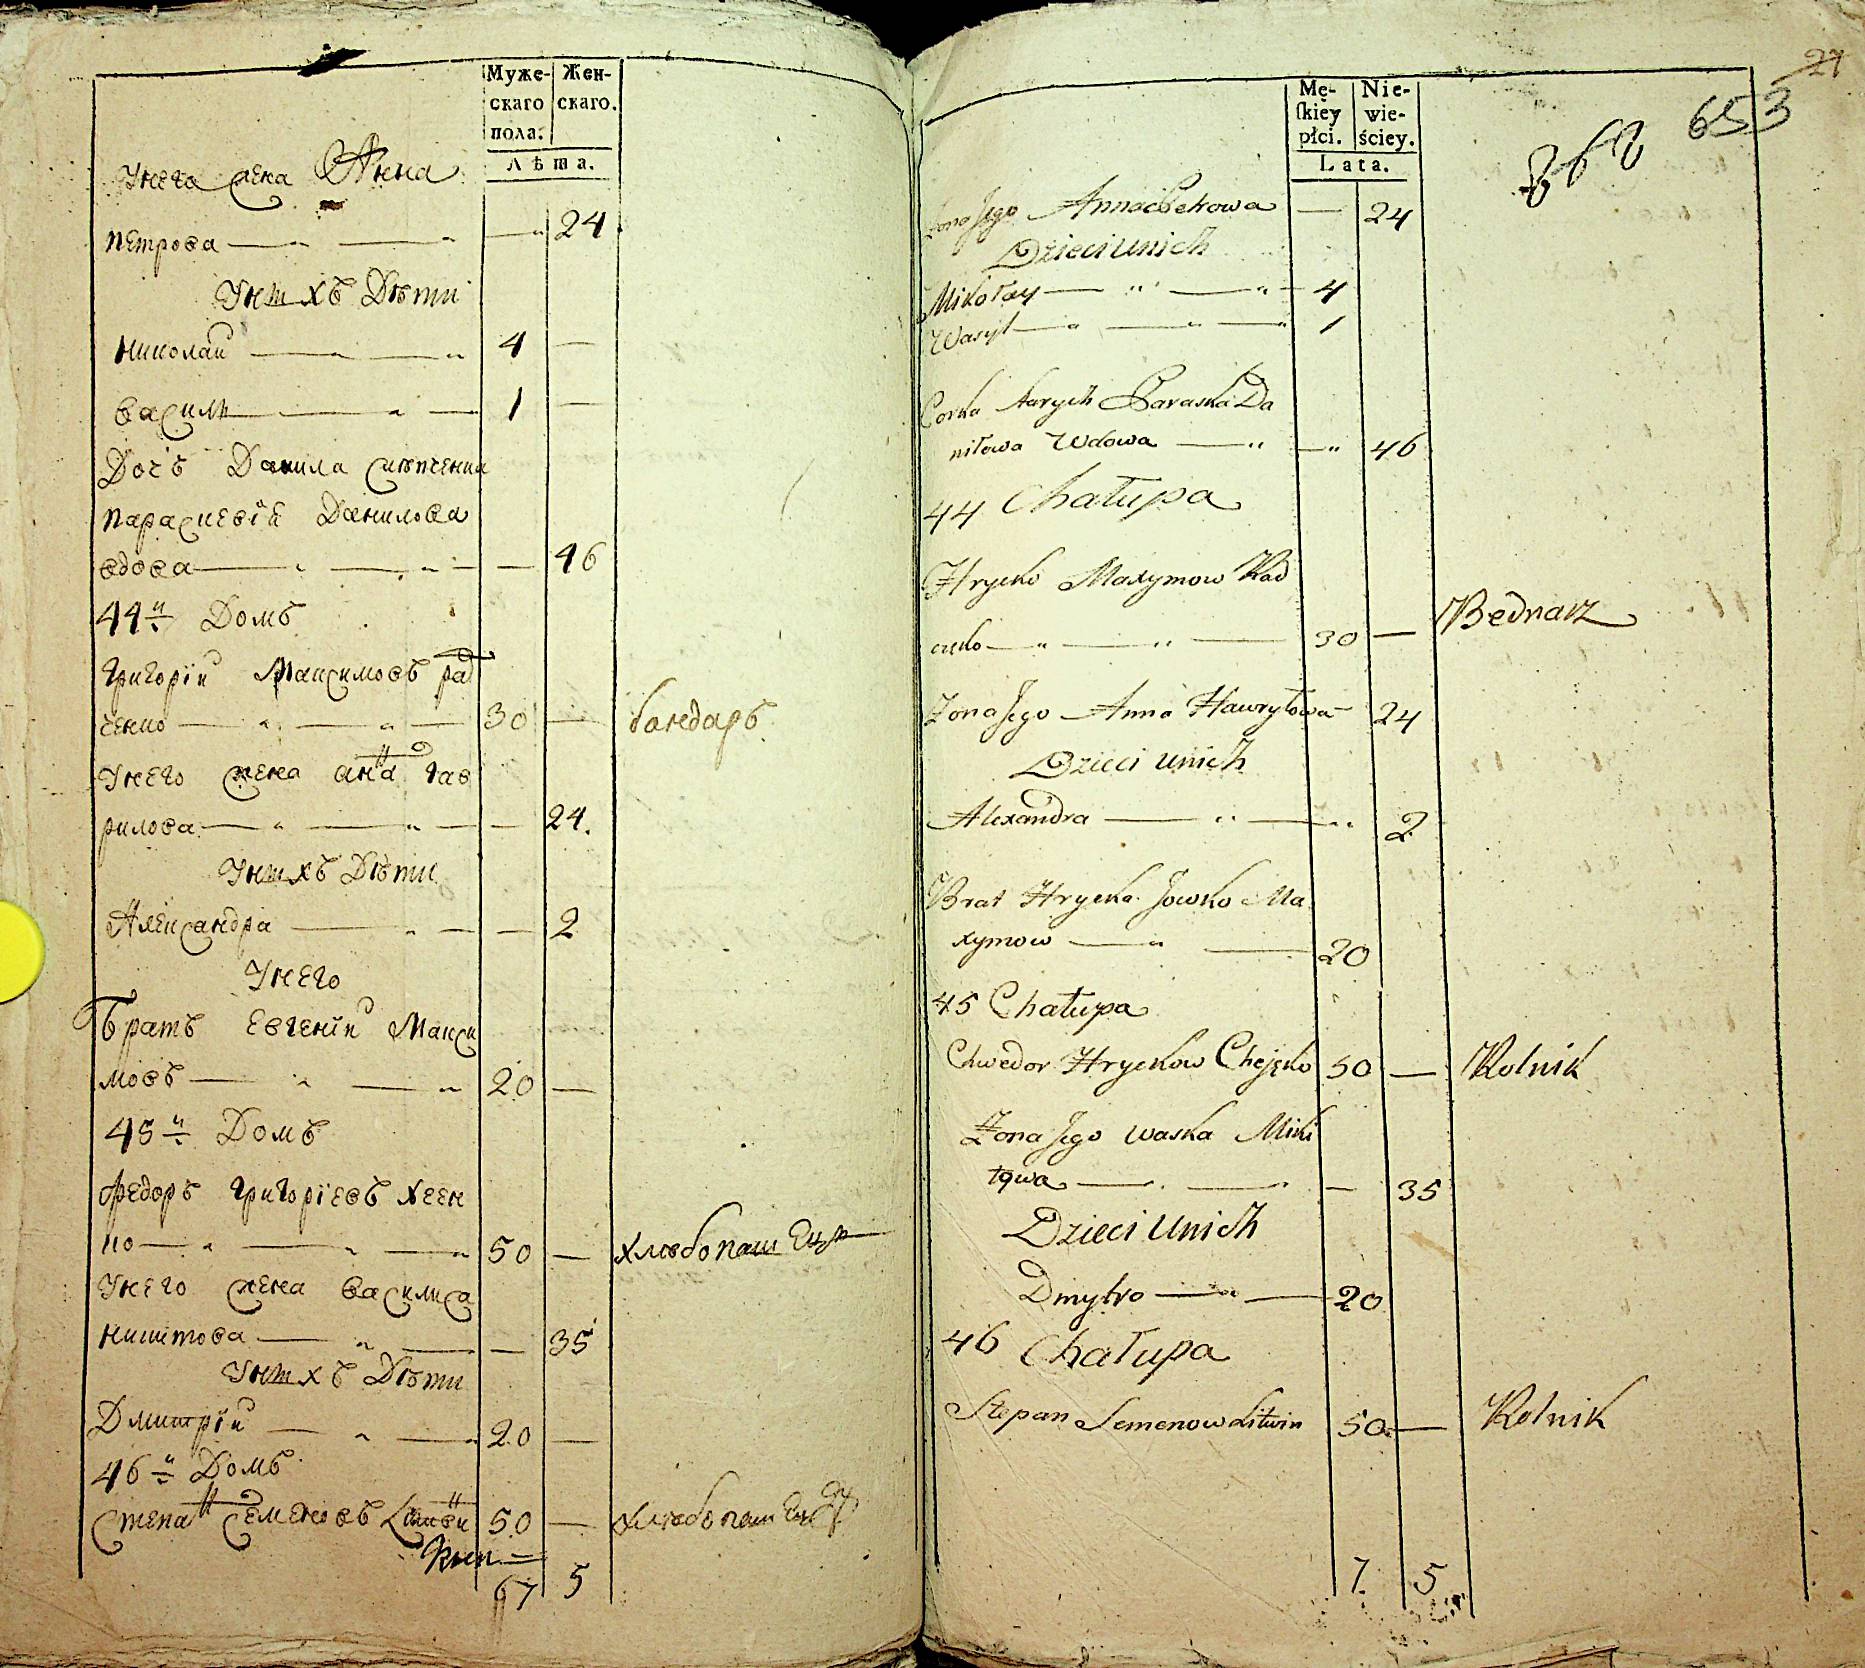 Муже-
скаго
пола.
Жен-
скаго.
Лѣта.
У него жена Анна
Петрова — — — 24
У нихъ Дѣти
Николай — — 4 —
Василь — — 1 —
Дочь Данила
Параскевія Данилова
вдова — — — 46
44й Домъ
Григорій Максимовъ Рад
ченко — — 30 — бондарь
У него жена Анна Гав
рилова — — — 24.
У нихъ Дѣти
Александра — — — 2
У него
Братъ Евгеній Макси
мовъ — — 20 —
45й Домъ
Федоръ Григоріевъ Хеен
ко — — 50 — хлѣбопашецъ
У него жена Василиса
Никитова — — — 35
У нихъ Дѣти
Дмитрій — — 20 —
46й Домъ
Степанъ Семеновъ Литвин 50 — хлѣбопашецъ
5
27
653
Mę-
skiey
płci.
Nie-
wie-
ściey.
Lata.
Żona Jego Anna Petrowa — 24
Dzieci u nich
Mikołay — — 4
Wasyl — — 1
Corka starych Paraska Da
niłowa Wdowa — — 46
44 Chałupa
Hrycko Maxymow Rad
czenko — — 30 — Bednarz
Zona Jego Anna Hawryłowa — 24
Dzieci u nich
Alexandra — — 2
Brat Hrycka Jowko Ma
xymow — — 20
45 Chałupa
Chwedor Hryckow Chejęko 50 — Rolnik
Żona Jego Waska Miki
towa — — — 35
Dzieci u nich
Dmytro — — 20
46 Chałupa
Stepan Semenow Litwin 50 — Rolnik
7. 5